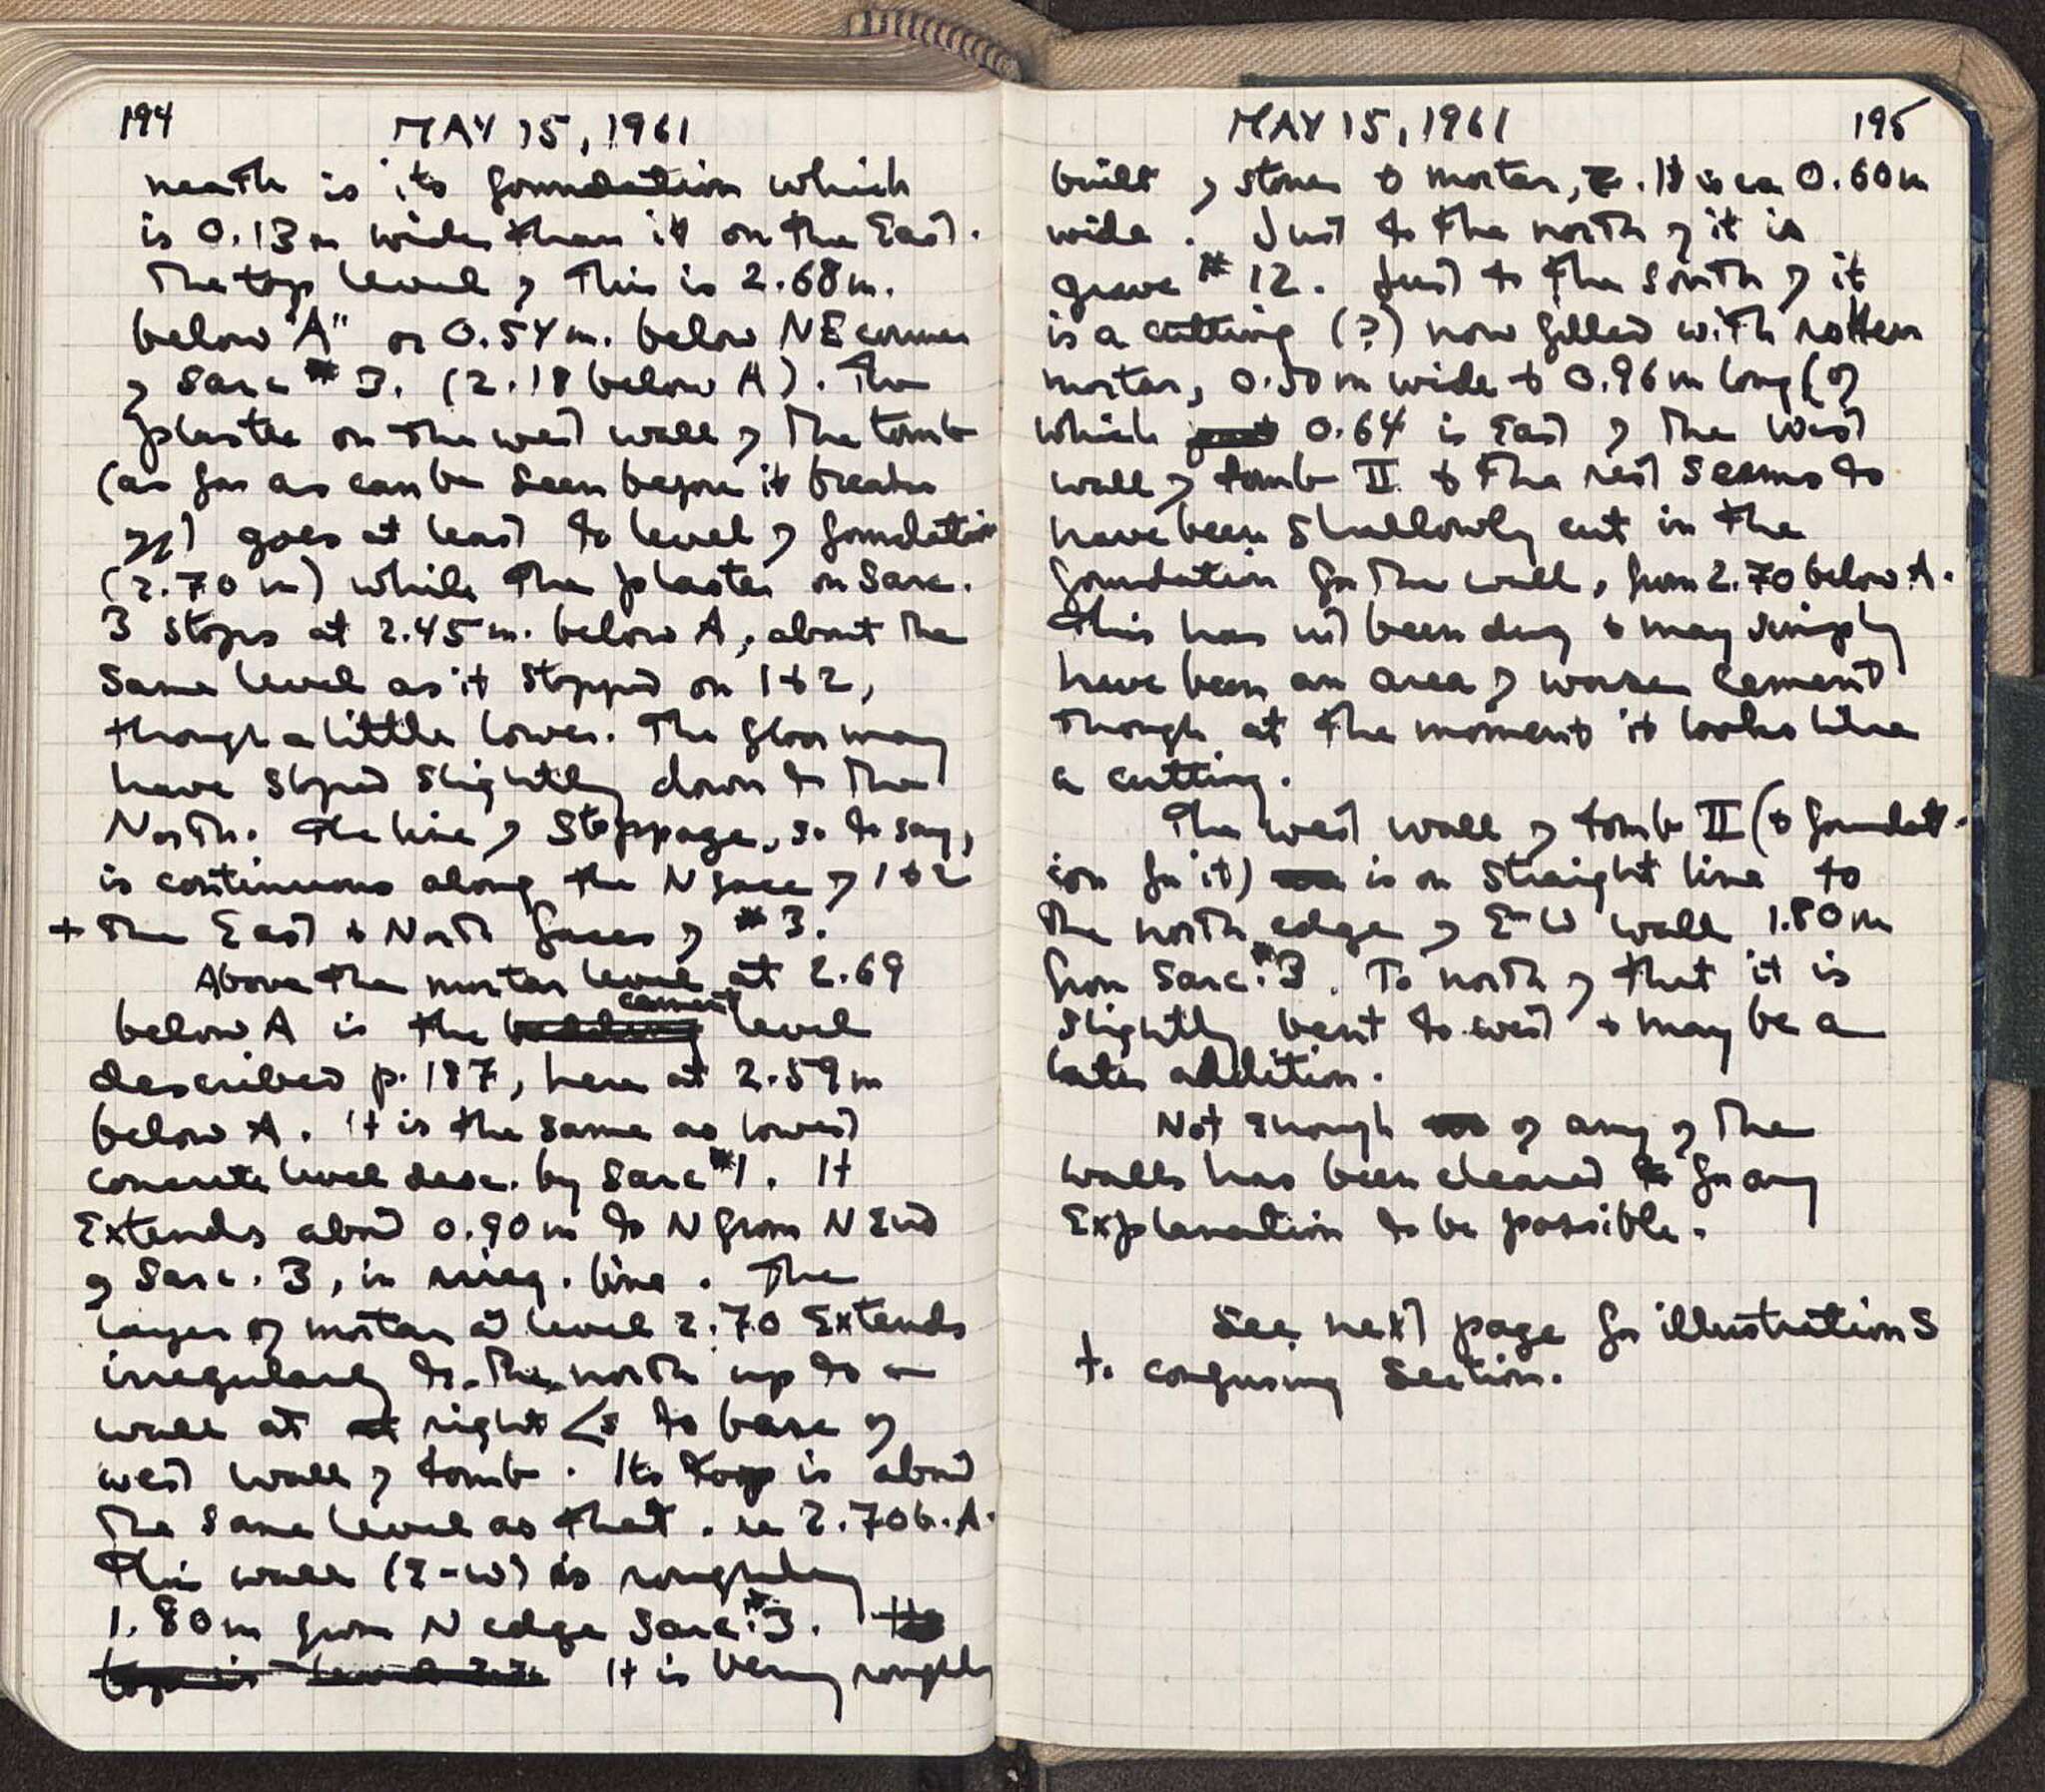 194
MAY 15, 1961
neath is its foundation which
is 0.13m wider than it on the East.
The top level of this is 2.68m.
below "A" or 0.54m. below NE corner
of Sarc #3. (2.18 below A). The
plaster on the west wall of the tomb
(as far as can be seen before it breaks
off) goes at least to level of foundation
(2.70 m) while the plaster on Sarc.
3 stops at 2.45m. below A, about the
same level as it stopped on 1 & 2,
though a little lower. The floor may
have sloped slightly down to the
North. The line of stoppage, so to say,
is continuous along the N face of 1 & 2
+ the East & North faces of #3.
Above the mortar level at 2.69
below A is the cement level
described p. 187, here at 2.59m
below A. It is the same as lowest
concrete level desc. by Sarc #1. It
Extends about 0.90m to N from N End
of Sarc. 3, in irreg. line. The
layer of mortar at level 2.70 Extends
irregularly to the north up to a
wall at right ∠s to base of
west wall of tomb. Its top is about
the same level as that. ie 2.70 b. A.
This wall (E-W) is roughly
1.80m from N edge Sarc. #3.
It is very roughly
MAY 15, 1961
195
built of stones & mortar, . It is ca 0.60m
wide. Just to the north of it is
grave #12. Just to the south of it
is a cutting (?) now filled with rotten
mortar, 0.50m wide & 0.96m long (of
which 0.64 is East of the West
wall of tomb II & the rest seems to
have been shallowly cut in the
foundation for the wall, from 2.70 below A.
This has not been dug & may simply
have been an area of worse cement
though at the moment it looks like
a cutting.
The west wall of tomb II (& foundat-
ion for it) is on straight line to
the north edge of E-W wall 1.80m
from Sarc. #3. To north of that it is
slightly bent to west & may be a
later addition.
Not Enough of any of the
walls has been cleared for any
Explanation to be possible.
See next page for illustrations
t. confusing section.